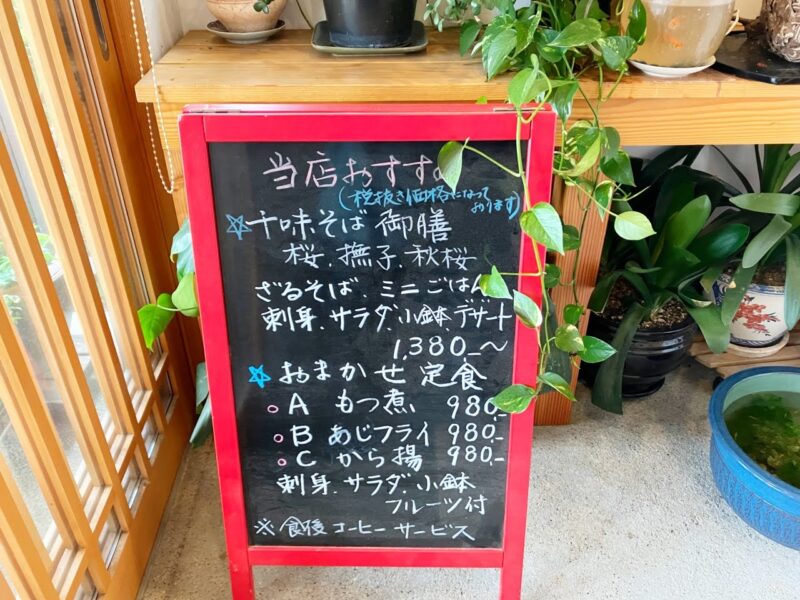 当店おすすめ
(税抜き価格になって
おります)
☆十味そば 御膳
桜、撫子、秋桜
ざるそば、ミニごはん
刺身、サラダ、小鉢、デザート
1,380.-～
☆おまかせ定食
○A もつ煮 980.-
○B あじフライ 980.-
○C から揚 980.-
刺身、サラダ、小鉢
フルーツ付
※食後コーヒーサービス